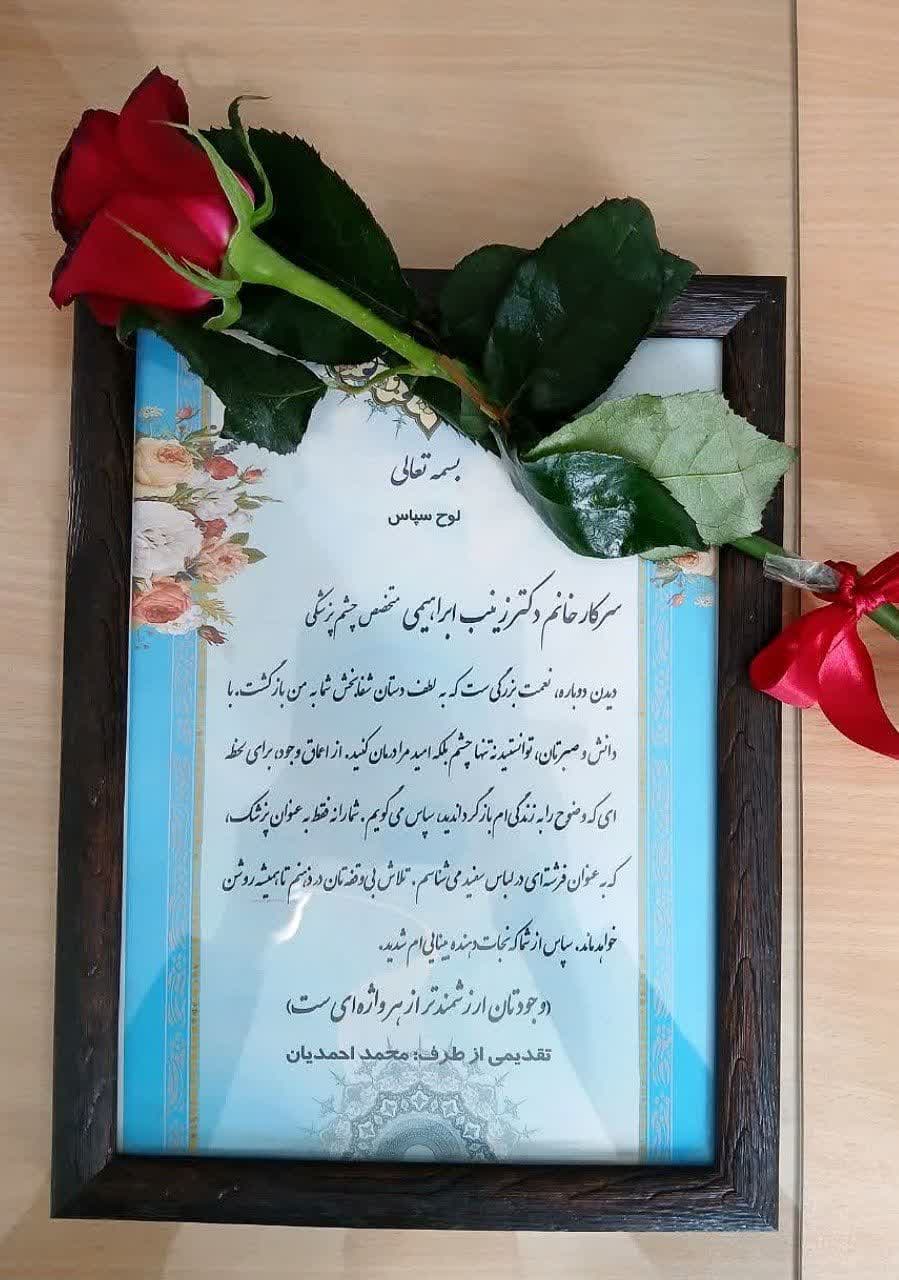 بسمه تعالی
لوح سپاس
سرکار خانم دکتر زینب ابراهیمی متخصص چشم پزشکی
دیدن دوباره، نعمت بزرگی ست که به لطف دستان شفابخش شما به من بازگشت. با
دانش و صبرتان، توانستید نه تنها چشم بلکه امید مرا درمان کنید. از اعماق وجود، برای لحظه
ای که وضوح را به زندگی ام بازگرداندید، سپاس می گویم. شما را نه فقط به عنوان پزشک،
که به عنوان فرشته ای در لباس سفید می شناسم. تلاش بی وقفه تان در ذهنم تا همیشه روشن
خواهد ماند. سپاس از شما که نجات دهنده بینایی ام شدید.
(وجودتان ارزشمندتر از هر واژه ای ست)
تقدیمی از طرف: محمد احمدیان